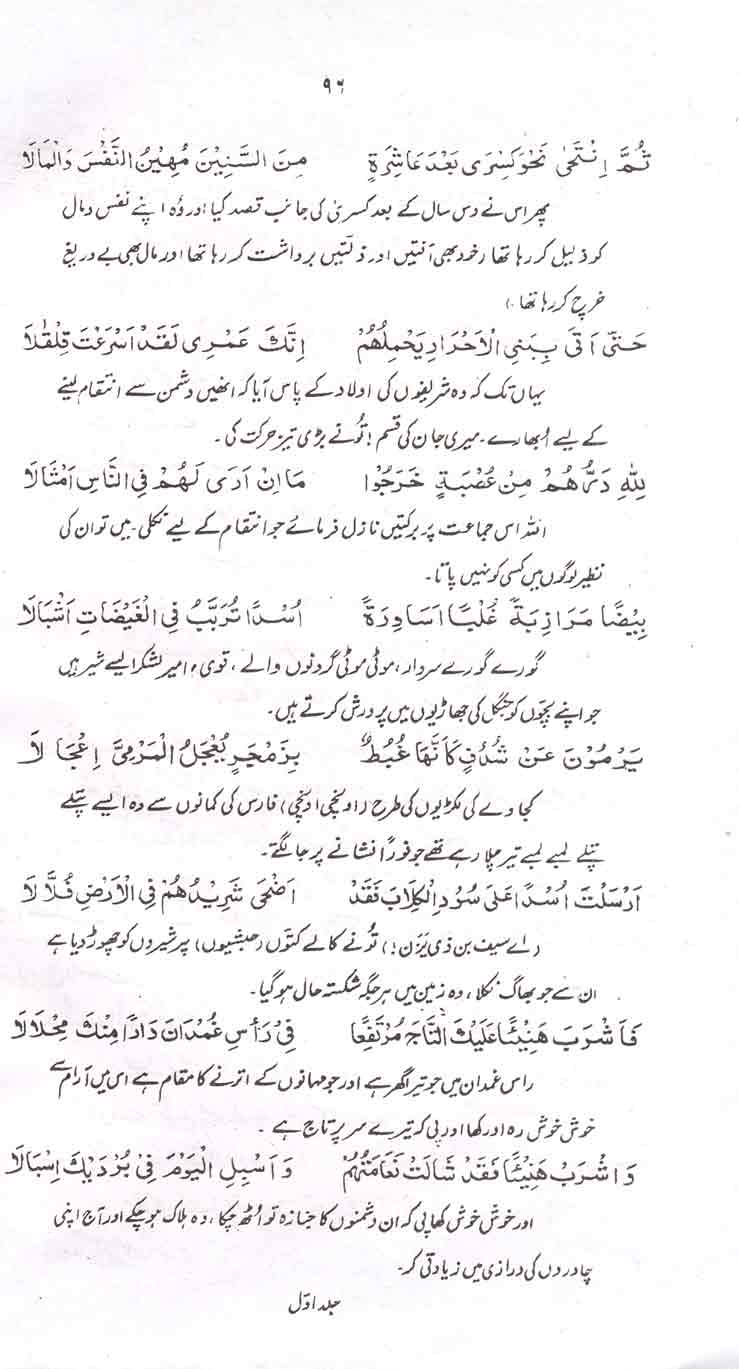 ۹۶
ثُمَّ اِنْتَحٰى نَحْوَ كِسْرٰى بَعْدَ عَاشِرَةٍ مِنَ السِّنِيْنَ مُهِيْنُ النَّفْسَ وَالْمَالَا
پھر اس نے دس سال کے بعد کسریٰ کی جانب قصد کیا اور وُہ اپنے نفس و مال
کو ذلیل کر رہا تھا (خود بھی آفتیں اور ذلّتیں برداشت کر رہا تھا اور مال بھی بے دریغ
خرچ کر رہا تھا۔)
حَتّٰى اَتٰى بِبَنِى الْاَحْرَارِ يَحْمِلُهُمْ اِنَّكَ عَمْرِى لَقَدْ اَسْرَعْتَ قِلْقَالَا
یہاں تک کہ وہ شریفوں کی اولاد کے پاس آیا کہ انھیں دشمن سے انتقام لینے
کے لیے اُبھارے۔ میری جان کی قسم! تُو نے بڑی تیز حرکت کی۔
لِلّٰهِ دَرُّهُمْ مِنْ عُصْبَةٍ خَرَجُوْا مَا اِنْ اَرٰى لَهُمْ فِى النَّاسِ اَمْثَالَا
اللہ اس جماعت پر برکتیں نازل فرمائے جو انتقام کے لیے نکلی۔ میں تو ان کی
نظیر لوگوں میں کسی کو نہیں پاتا۔
بِيْضًا مَرَازِبَةً غُلْبًا اَسَاوِرَةً اُسْدًا تُرَبِّبُ فِى الْغَيْضَاتِ اَشْبَالَا
گورے گورے سردار، موٹی موٹی گردنوں والے، قوی، امیر لشکر ایسے شیر ہیں
جو اپنے بچّوں کو جنگل کی جھاڑیوں میں پرورش کرتے ہیں۔
يَرْمُوْنَ عَنْ شُدُفٍ كَاَنَّهَا غُبُطٌ بِزَمْجَرٍ يُعْجِلُ الْمَرْمِىَّ اِعْجَالَا
کجاوے کی لکڑیوں کی طرح (اونچی اونچی) فارس کی کمانوں سے وہ ایسے پتلے
پتلے لمبے لمبے تیر چلا رہے تھے جو فوراً نشانے پر جا لگتے۔
اَرْسَلْتَ اُسْدًا عَلٰى سُوْدِ الْكِلَابِ فَقَدْ اَضْحٰى شَرِيْدُهُمْ فِى الْاَرْضِ فُلَّالَا
(اے سیف بن ذی یزن!) تُو نے کالے کتّوں (حبشیوں) پر شیروں کو چھوڑ دیا ہے
ان سے جو بھاگ نکلا، وہ زمین میں ہر جگہ شکستہ حال ہو گیا۔
فَاشْرَبْ هَنِيْئًا عَلَيْكَ التَّاجُ مُرْتَفِعًا فِىْ رَأْسِ غُمْدَانَ دَارًا مِنْكَ مِحْلَالَا
راس غمدان میں جو تیرا گھر ہے اور جو مہمانوں کے اترنے کا مقام ہے اس میں آرام سے
خوش خوش رہ اور کھا اور پی کہ تیرے سر پر تاج ہے۔
وَاشْرَبْ هَنِيْئًا فَقَدْ شَالَتْ نَعَامَتُهُمْ وَاَسْبِلِ الْيَوْمَ فِىْ بُرْدَيْكَ اِسْبَالَا
اور خوش خوش کھا پی کہ ان دشمنوں کا جنازہ تو اُٹھ چکا، وہ ہلاک ہو چکے اور آج اپنی
چادروں کی درازی میں زیادتی کر۔
جلد اوّل